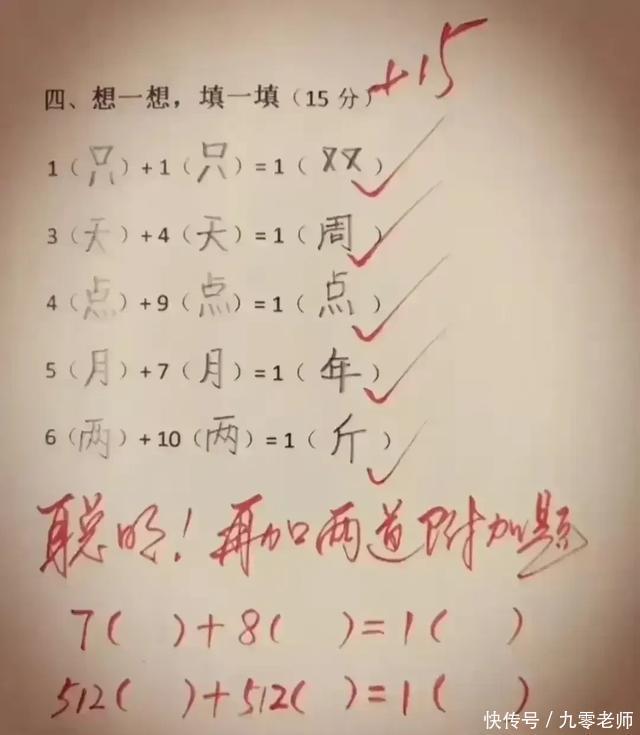 +15
四、想一想，填一填（15 分）
1（只）+1（只）=1（双）
3（天）+4（天）=1（周）
4（点）+9（点）=1（点）
5（月）+7（月）=1（年）
6（两）+10（两）=1（斤）
聪明！再加两道附加题
7( )+8( )=1( )
512( )+512( )=1( )
快传号／九零老师